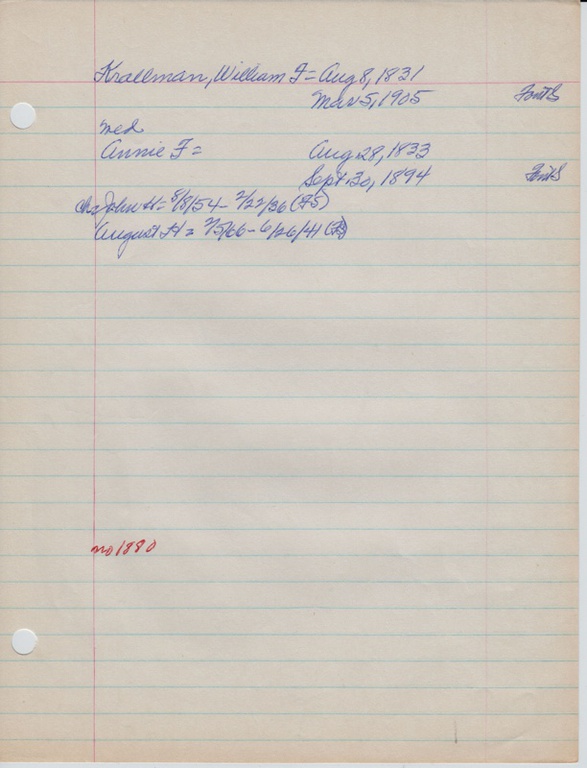 Krallman, William F = Aug 8, 1831
Mar 5, 1905 FontS
wed
Annie F = Aug 28, 1833
Sept 30, 1894 FontS
Chs John H = 5/8/54 - 2/22/36 (FS)
August H = 2/5/66 - 6/26/41 (FS)
no 1880